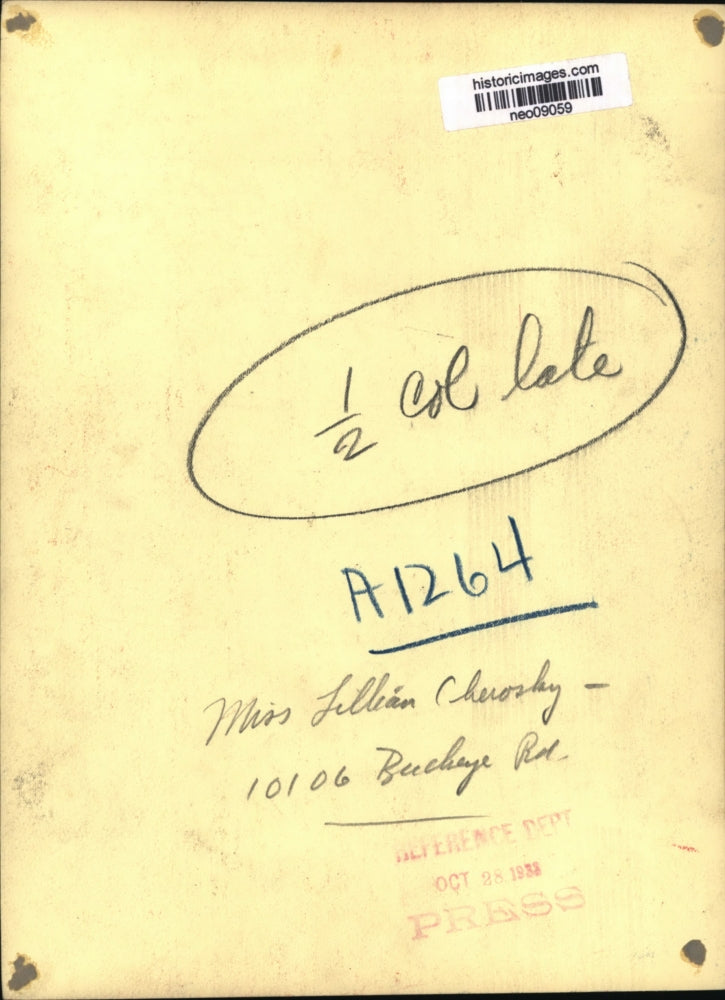 historicimages.com
neo09059
1/2 col late
A1264
Miss Lillian Cherosky -
10106 Buckeye Rd.
REFERENCE DEPT
OCT 28 1938
PRESS